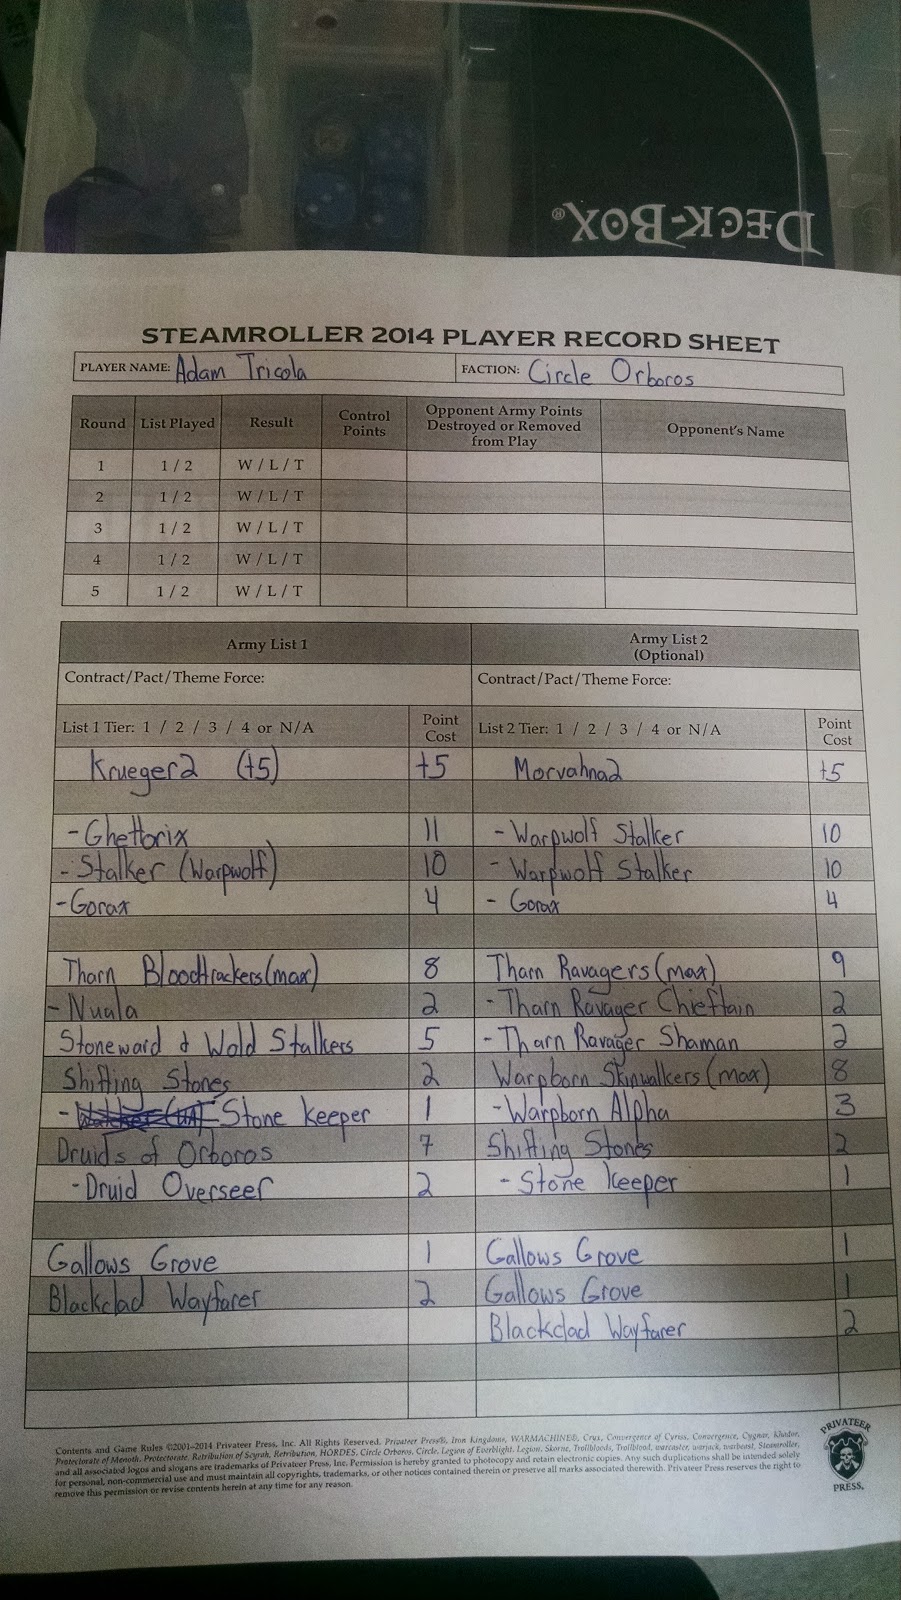 DECK-BOX®
STEAMROLLER 2014 PLAYER RECORD SHEET
PLAYER NAME: Adam Tricola FACTION: Circle Orboros
Round List Played Result Control Points Opponent Army Points Destroyed or Removed from Play Opponent's Name
1 1 / 2 W / L / T
2 1 / 2 W / L / T
3 1 / 2 W / L / T
4 1 / 2 W / L / T
5 1 / 2 W / L / T
Army List 1 Army List 2 (Optional)
Contract/Pact/Theme Force: Contract/Pact/Theme Force:
List 1 Tier: 1 / 2 / 3 / 4 or N/A Point Cost List 2 Tier: 1 / 2 / 3 / 4 or N/A Point Cost
Krueger2 (+5) +5 Morvahna2 +5
- Ghettorix 11 - Warpwolf Stalker 10
- Stalker (Warpwolf) 10 - Warpwolf Stalker 10
- Gorax 4 - Gorax 4
Tharn Bloodtrackers (max) 8 Tharn Ravagers (max) 9
- Nuala 2 - Tharn Ravager Chieftain 2
Stoneward & Wold Stalkers 5 - Tharn Ravager Shaman 2
Shifting Stones 2 Warpborn Skinwalkers (max) 8
- Stone Keeper 1 - Warpborn Alpha 3
Druids of Orboros 7 Shifting Stones 2
- Druid Overseer 2 - Stone Keeper 1
Gallows Grove 1 Gallows Grove 1
Blackclad Wayfarer 2 Gallows Grove 1
Blackclad Wayfarer 2
Contents and Game Rules ©2001–2014 Privateer Press, Inc. All Rights Reserved. Privateer Press®, Iron Kingdoms, WARMACHINE®, Crux, Convergence of Cyriss, Convergence, Cygnar, Khador,
Protectorate of Menoth, Protectorate, Retribution of Scyrah, Retribution, HORDES, Circle Orboros, Circle, Legion of Everblight, Legion, Skorne, Trollbloods, Trollblood, warcaster, warjack, warbeast, Steamroller,
and all associated logos and slogans are trademarks of Privateer Press, Inc. Permission is hereby granted to photocopy and retain electronic copies. Any such duplications shall be intended solely
for personal, non-commercial use and must maintain all copyrights, trademarks, or other notices contained therein or preserve all marks associated therewith. Privateer Press reserves the right to
remove this permission or revise contents herein at any time for any reason.
PRIVATEER PRESS.